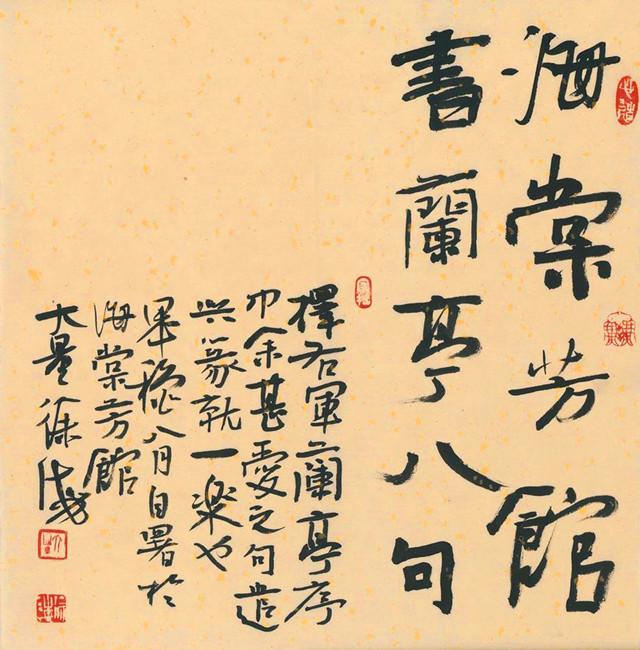 海棠芳館
書蘭亭八句
擇右軍蘭亭序
中余甚愛之句造
興篆就一樂也
八月自署於
海棠芳館
徐